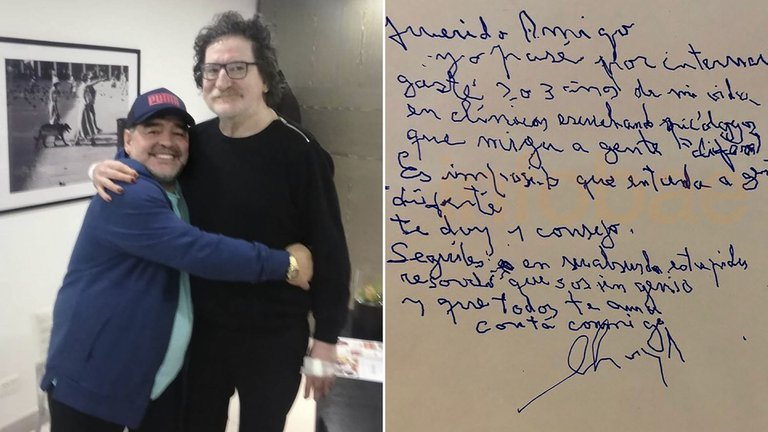 PUMA
Querido Amigo
yo pasé por internar
gasté 2 o 3 años de mi vida
en clínicas escuchando psicólogos
que miran a gente "difere
Es imposible que entienda a ge
diferente
te doy 1 consejo.
Seguiles en su absurda estupidez
resorda que sos un genio
y que todos te aman
contá conmigo
infobae